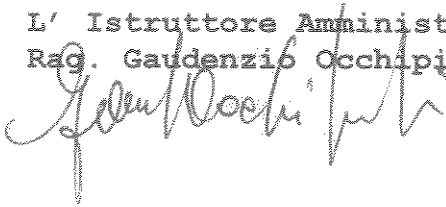 L' Istruttore Amminist
Rag. Gaudenzio Occhipi